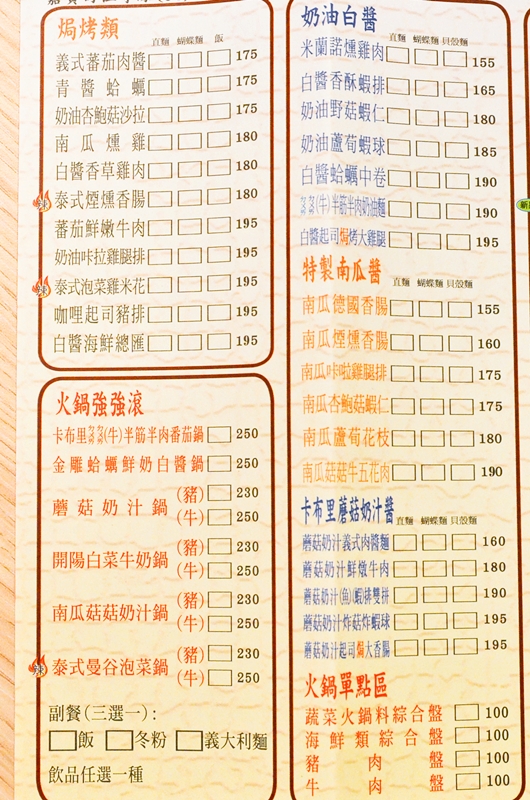 焗烤類
直麵 蝴蝶麵 飯
義式蕃茄肉醬 175
青醬蛤蠣 175
奶油杏鮑菇沙拉 175
南瓜燻雞 180
白醬香草雞肉 180
辣 泰式煙燻香腸 180
蕃茄鮮嫩牛肉 195
奶油咔拉雞腿排 195
辣 泰式泡菜雞米花 195
咖哩起司豬排 195
白醬海鮮總匯 195
火鍋強強滾
卡布里ㄋㄋ(牛)半筋半肉番茄鍋 250
金雕蛤蠣鮮奶白醬鍋 250
蘑菇奶汁鍋 (豬) 230
(牛) 250
開陽白菜牛奶鍋 (豬) 230
(牛) 250
南瓜菇菇奶汁鍋 (豬) 230
(牛) 250
辣 泰式曼谷泡菜鍋 (豬) 230
(牛) 250
副餐(三選一):
飯 冬粉 義大利麵
飲品任選一種
奶油白醬
直麵 蝴蝶麵 貝殼麵
米蘭諾燻雞肉 155
白醬香酥蝦排 165
奶油野菇蝦仁 180
奶油蘆荀蝦球 185
白醬蛤蠣中卷 190
(牛)半筋半肉奶油麵 190
白醬起司焗烤大雞腿 195
特製南瓜醬
直麵 蝴蝶麵 貝殼麵
南瓜德國香腸 155
南瓜煙燻香腸 160
南瓜咔啦雞腿排 175
南瓜杏鮑菇蝦仁 175
南瓜蘆荀花枝 180
南瓜菇菇牛五花肉 190
卡布里蘑菇奶汁醬
直麵 蝴蝶麵 貝殼麵
蘑菇奶汁義式肉醬麵 160
蘑菇奶汁鮮燉牛肉 180
蘑菇奶汁(魚)(蝦)排雙拼 190
蘑菇奶汁炸菇炸蝦球 195
蘑菇奶汁起司焗大香腸 195
火鍋單點區
蔬菜火鍋料綜合盤 100
海鮮類綜合盤 100
豬肉盤 100
牛肉盤 100